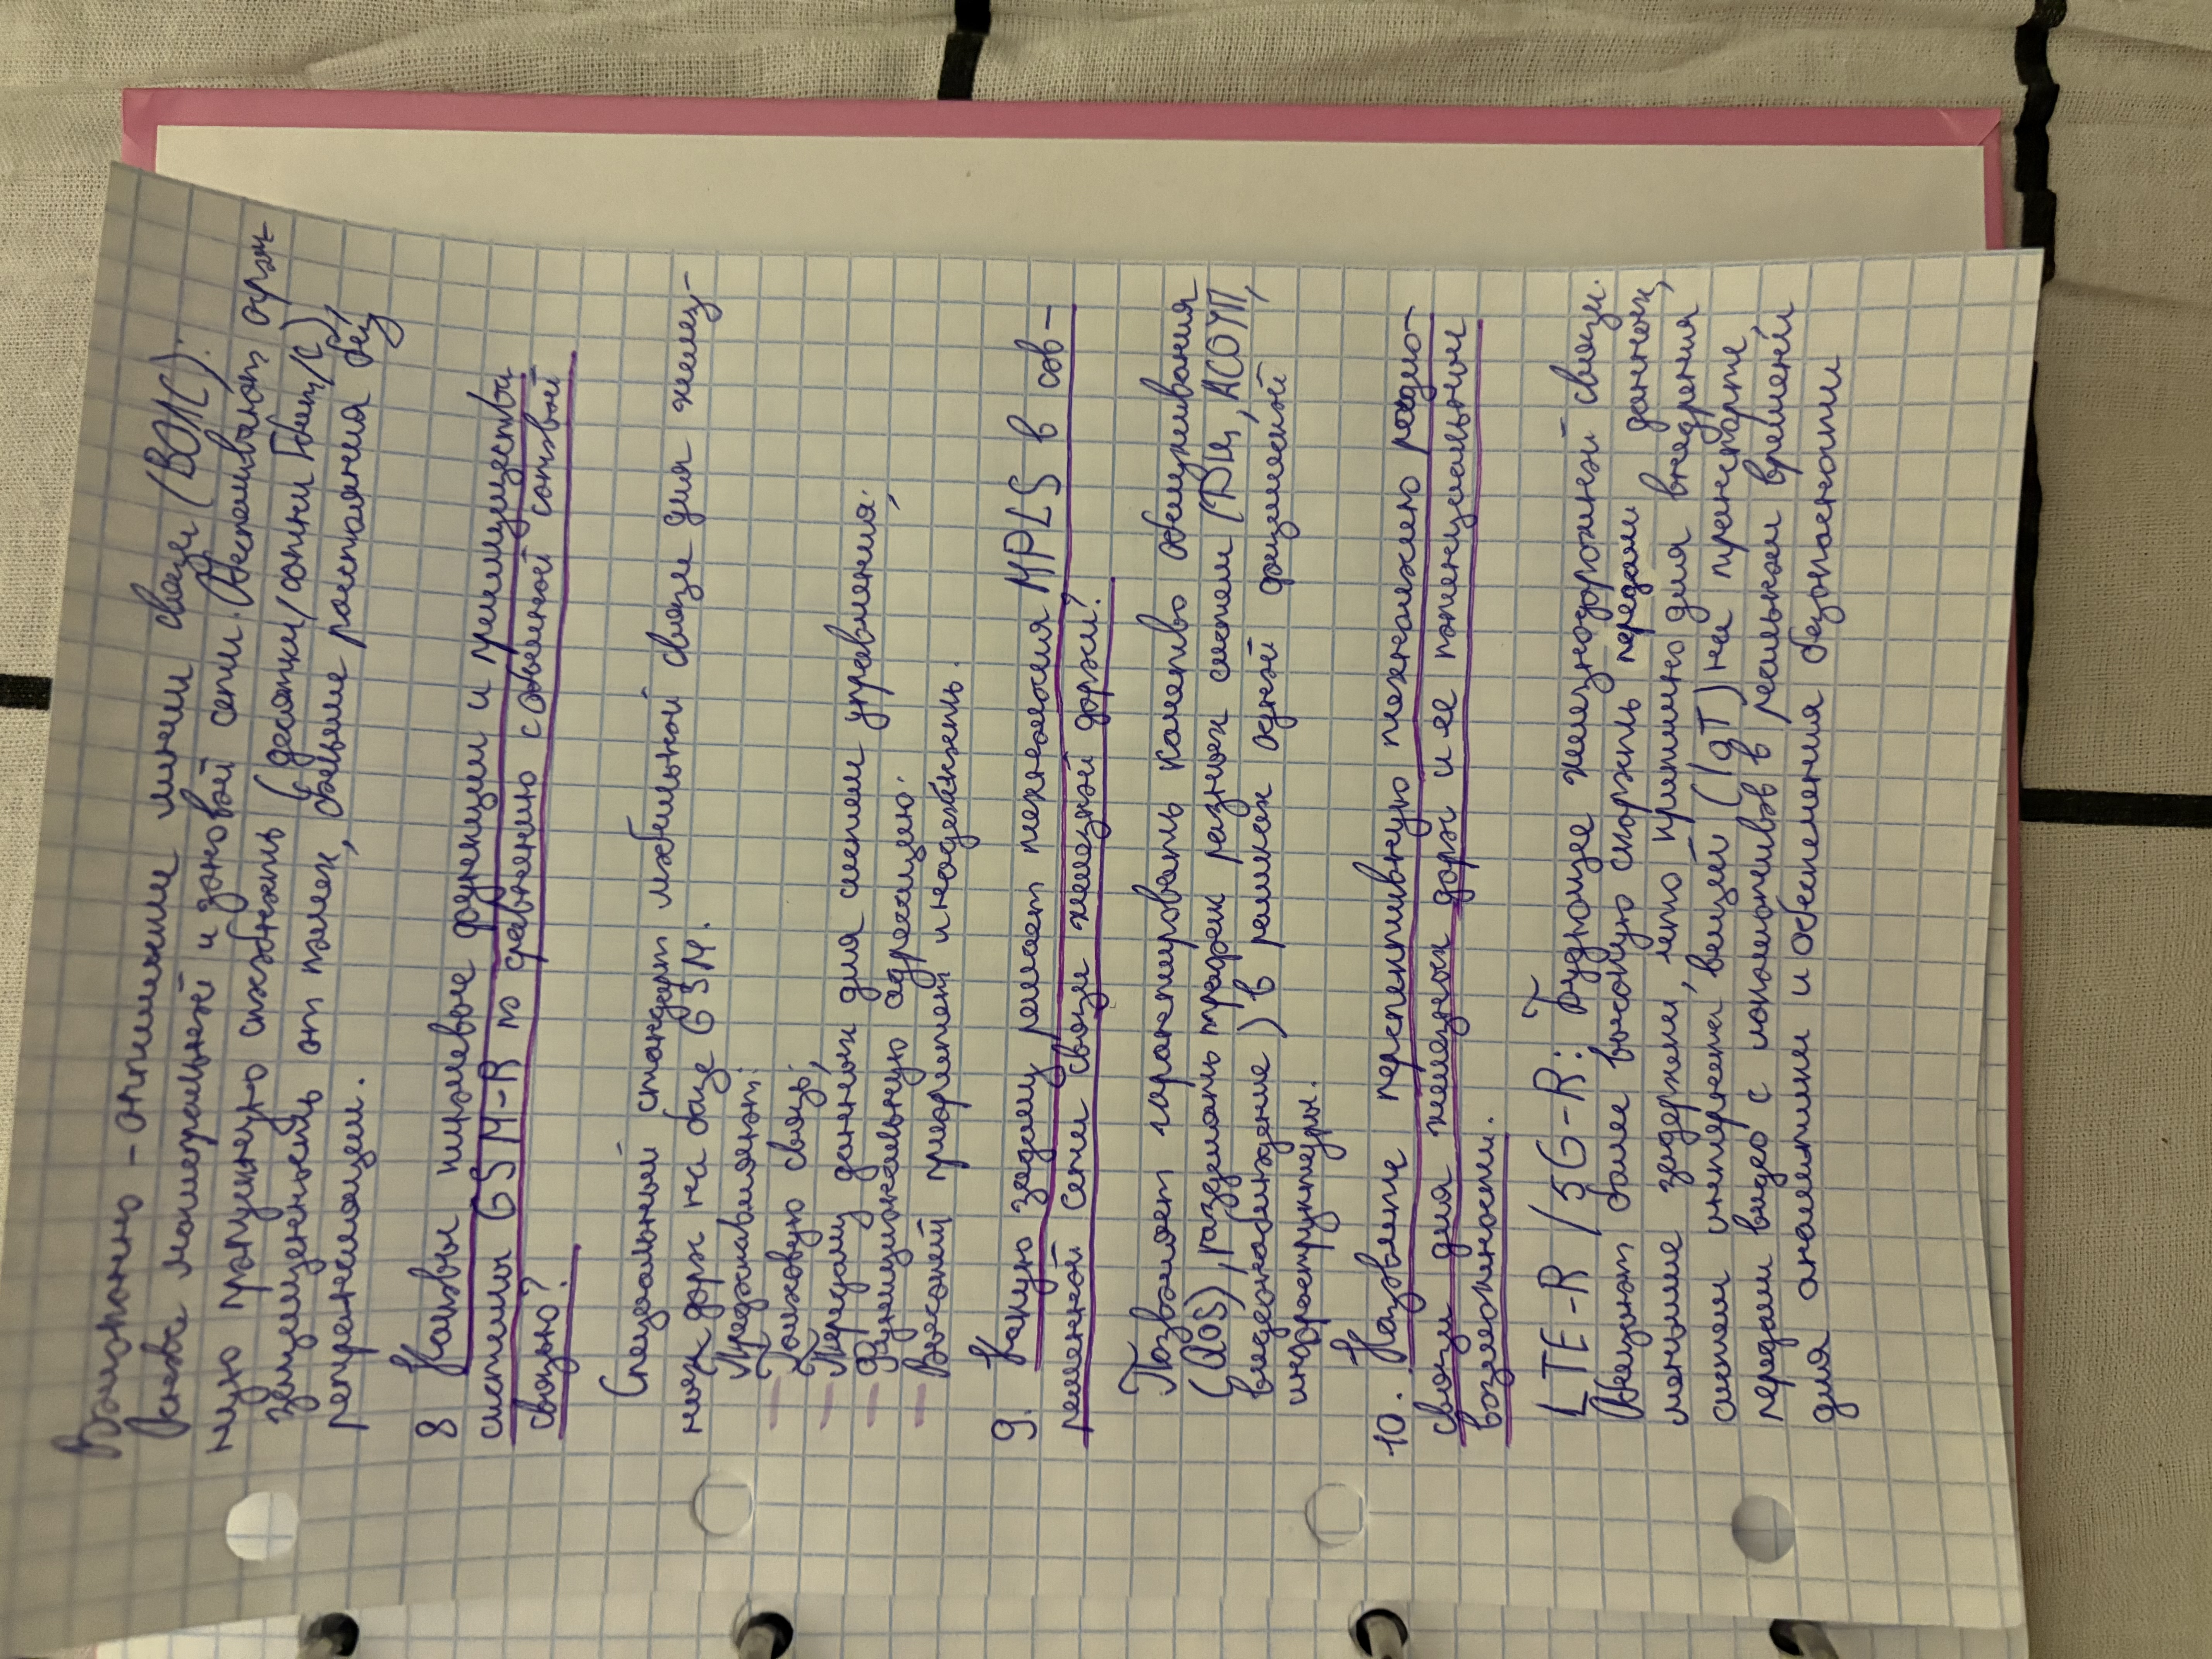 Волоконно-оптические линии связи (ВОЛС):
Основе магистральной и зоновой сети. Обеспечивают огром-
ную пропускную способность (десятки/сотни Гбит/с),
защищенность от помех, большие расстояния без
регенерации.
8 Назовы ключевые функции и преимущества
системы GSM-R по сравнению с обычной сотовой
связью?
Специальный стандарт мобильной связи для желез-
ных дорог на базе GSM.
Предоставляет:
- Голосовую связь;
- Передачу данных для систем управления;
- Функциональную адресацию.
- Высокий приоритет и надежность.
9. Какую задачу решает технология MPLS в сов-
ременной сети связи железной дороги?
Позволяет гарантировать качество обслуживания
(QoS), разделять трафик разных систем (ДЦ, АСОУП,
видеонаблюдение) в рамках одной физической
инфраструктуры.
10. Назовите перспективную технологию радио-
связи для железных дорог и ее потенциальные
возможности.
LTE-R / 5G-R: Будующее железнодорожной связи.
Обеспечит более высокую скорость передачи данных,
меньшие задержки, что критично для внедрения
систем интернета вещей (IoT) на транспорте
передачи видео с локомотивов в реальном времени
для аналитики и обеспечения безопасности